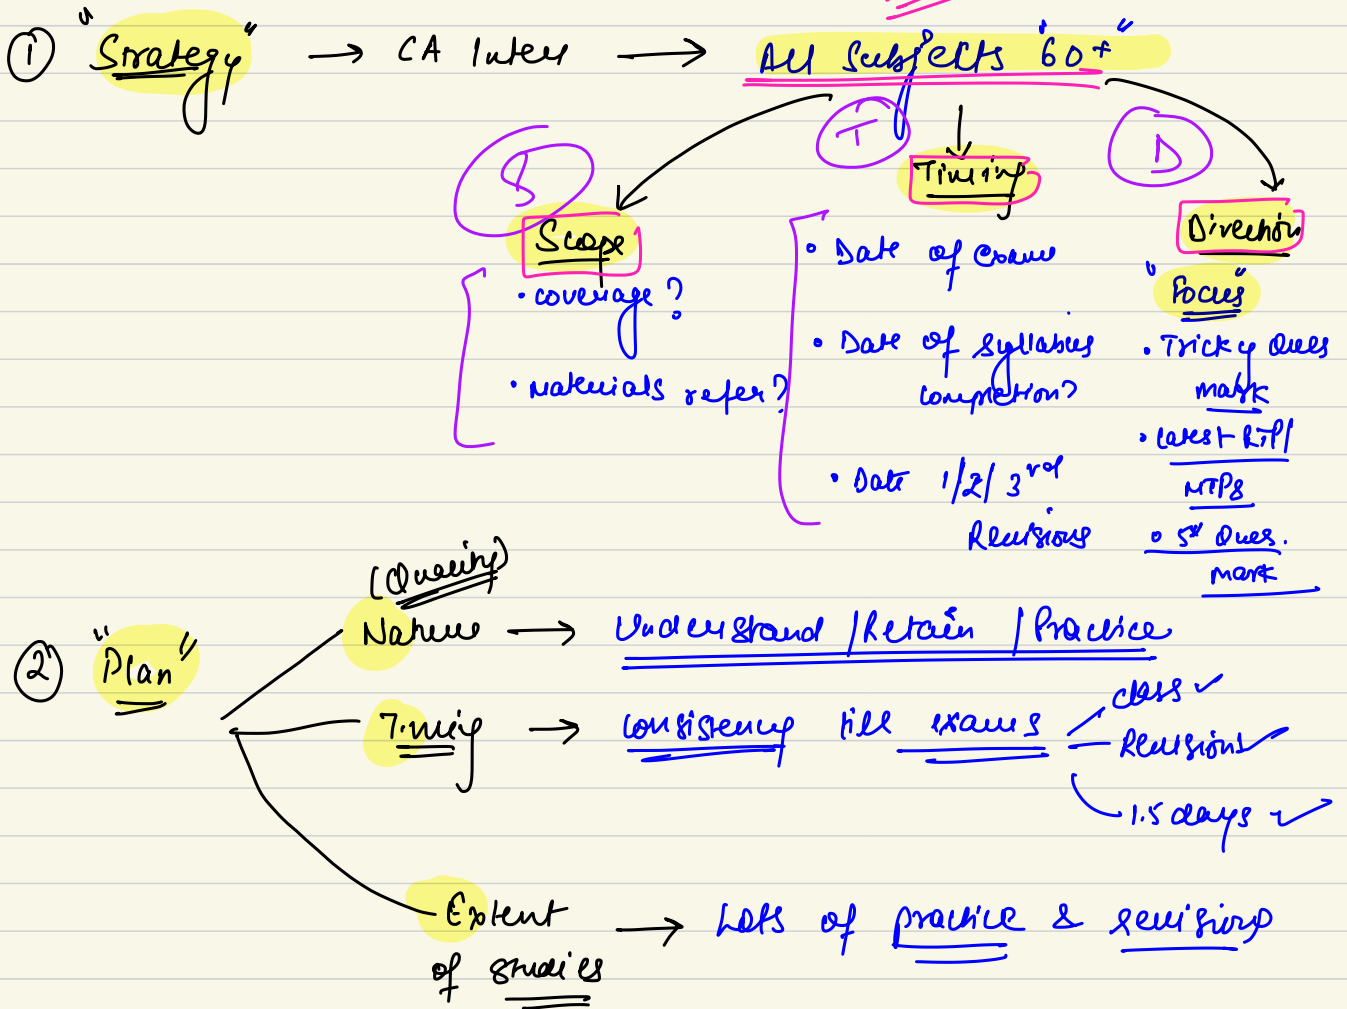 ① "Strategy" → CA Inter → All Subjects "60+"
S T D
Scope
• coverage ?
• Materials refer?
Timing
• Date of Exams
• Date of Syllabus
completion?
• Date 1/2/3rd
Revisions
Direction
"Focus"
• Tricky Ques
mark
• Latest RTP/
MTPs
• 5* Ques.
mark
② "Plan"
(Quality)
Nature → Understand / Retain / Practice
Timing → Consistency till exams
class ✓
Revisions ✓
1.5 days ✓
Extent
of studies → Lots of practice & revisions